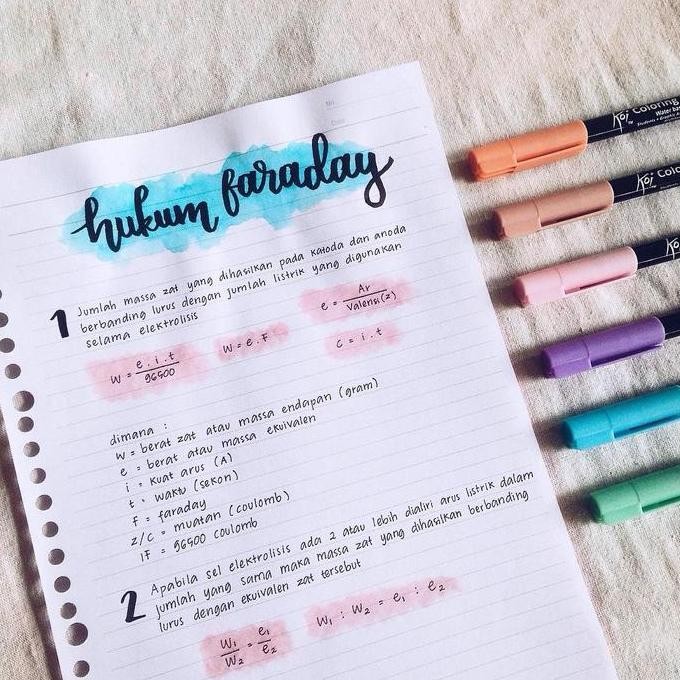 No.
Date
hukum faraday
1 Jumlah massa zat yang dihasilkan pada katoda dan anoda
berbanding lurus dengan jumlah listrik yang digunakan
selama elektrolisis
e = Ar / Valensi(z)
W = e . i . t / 96500
W = e . F
C = i . t
dimana :
W = berat zat atau massa endapan (gram)
e = berat atau massa ekuivalen
i = kuat arus (A)
t = waktu (sekon)
F = faraday
z/C = muatan (coulomb)
1F = 96500 coulomb
2 Apabila sel elektrolisis ada 2 atau lebih dialiri arus listrik dalam
jumlah yang sama maka massa zat yang dihasilkan berbanding
lurus dengan ekuivalen zat tersebut
W₁ / W₂ = e₁ / e₂
W₁ : W₂ = e₁ : e₂
Koi Coloring
Water ba
Koi Colo
Koi
Ko